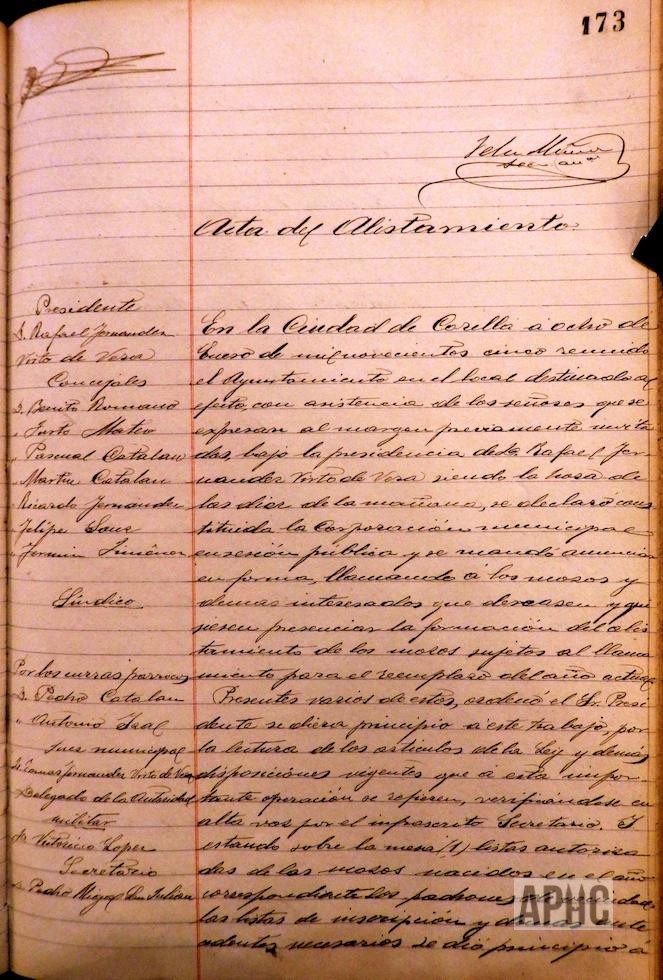 173
Secretario
Acta del Alistamiento
Presidente
D. Rafael Fernandez
Virto de Vera
Concejales
D. Benito Romano
" Justo Mateo
" Pascual Catalan
" Martin Catalan
" Ricardo Fernandez
" Felipe Sanz
" Fermin Jimenez
Síndico
Por los curras parrocos
D. Pedro Catalan
" Antonio
Juez municipal
D. Tomas Fernandez Virto de Vera
Delegado de la Autoridad
militar
D. Victorico Lopez
Secretario
D. Pedro Miguel San Julian
En la Ciudad de Corella á ocho de
Enero de mil novecientos cinco reunido
el Ayuntamiento en el local destinado al
efecto, con asistencia de los señores que se
expresan al margen previamente
das, bajo la presidencia de D. Rafael Fer-
nandez Virto de Vera siendo la hora de
las diez de la mañana, se declaró cons
tituida la Corporación municipal
en sesión pública y se mandó anunciar
en forma, llamando á los mozos y
demas interesados que deseasen y qui
siesen presenciar la formación del alis
tamiento de los mozos sujetos al llama
miento para el reemplazo del año actual
Presentes varios de estos, ordenó el Sr. Presi
dente se diera principio á este trabajo, por
la lectura de los artículos de la Ley y demás
disposiciones vigentes que á esta impor-
tante operación se refieren, verificándose en
alta voz por el infrascrito Secretario. Y
estando sobre la mesa (1) listas autoriza
das de los mozos nacidos en el año
correspondiente los padrones de
las listas de inscripción y
necesarios se dió principio á
APHC